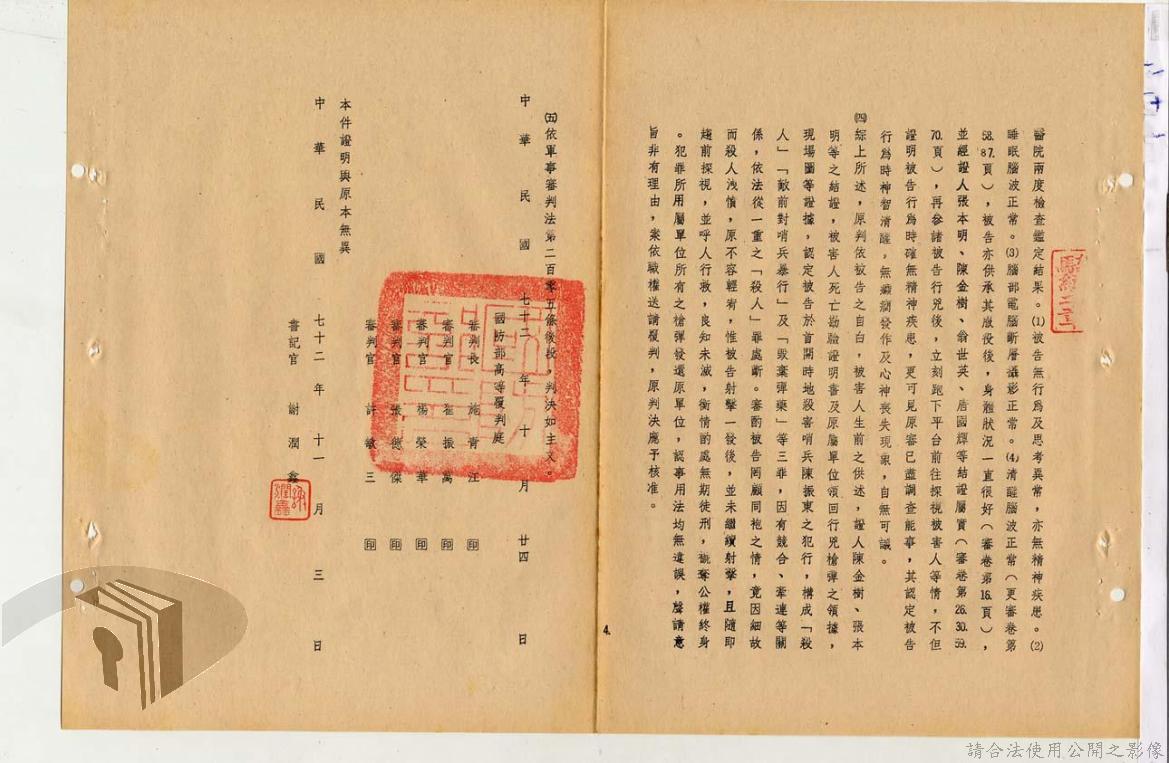 醫院兩度檢查鑑定結果。⑴被告無行為及思考異常，亦無精神疾患。⑵
睡眠腦波正常。⑶腦部電腦斷層攝影正常。⑷清醒腦波正常（更審卷第
58.87.頁），被告亦供承其服役後，身體狀況一直很好（審卷第16.頁），
並經證人張本明、陳金樹、翁世英、唐國輝等結證屬實（審卷第26.30.59.
70.頁），再參諸被告行兇後，立刻跑下平台前往探視被害人等情，不但
證明被告行為時確無精神疾患，更可見原審已盡調查能事，其認定被告
行為時神智清醒，無癲癇發作及心神喪失現象，自無可議。
㈣綜上所述，原判依被告之自白，被害人生前之供述，證人陳金樹、張本
明等之結證，被害人死亡勘驗證明書及原屬單位領回行兇槍彈之領據，
現場圖等證據，認定被告於首開時地殺害哨兵陳振東之犯行，構成「殺
人」「敵前對哨兵暴行」及「毀棄彈藥」等三罪，因有競合、牽連等關
係，依法從一重之「殺人」罪處斷。審酌被告罔顧同袍之情，竟因細故
而殺人洩憤，原不容輕宥，惟被告射擊一發後，並未繼續射擊，且隨即
趨前探視，並呼人行救，良知未滅，衡情酌處無期徒刑，褫奪公權終身
。犯罪所用屬單位所有之槍彈發還原單位，認事用法均無違誤，聲請意
旨非有理由，案依職權送請覆判，原判決應予核准。
4.
㈤依軍事審判法第二百零五條後段，判決如主文。
中華民國七十二年十月廿四日
國防部高等覆判庭
審判長 施青江 印
審判官 崔振萬 印
審判官 楊榮華 印
審判官 張德傑 印
審判官 許敏三 印
本件證明與原本無異
中華民國七十二年十一月三日
書記官 謝潤鑫
請合法使用公開之影像